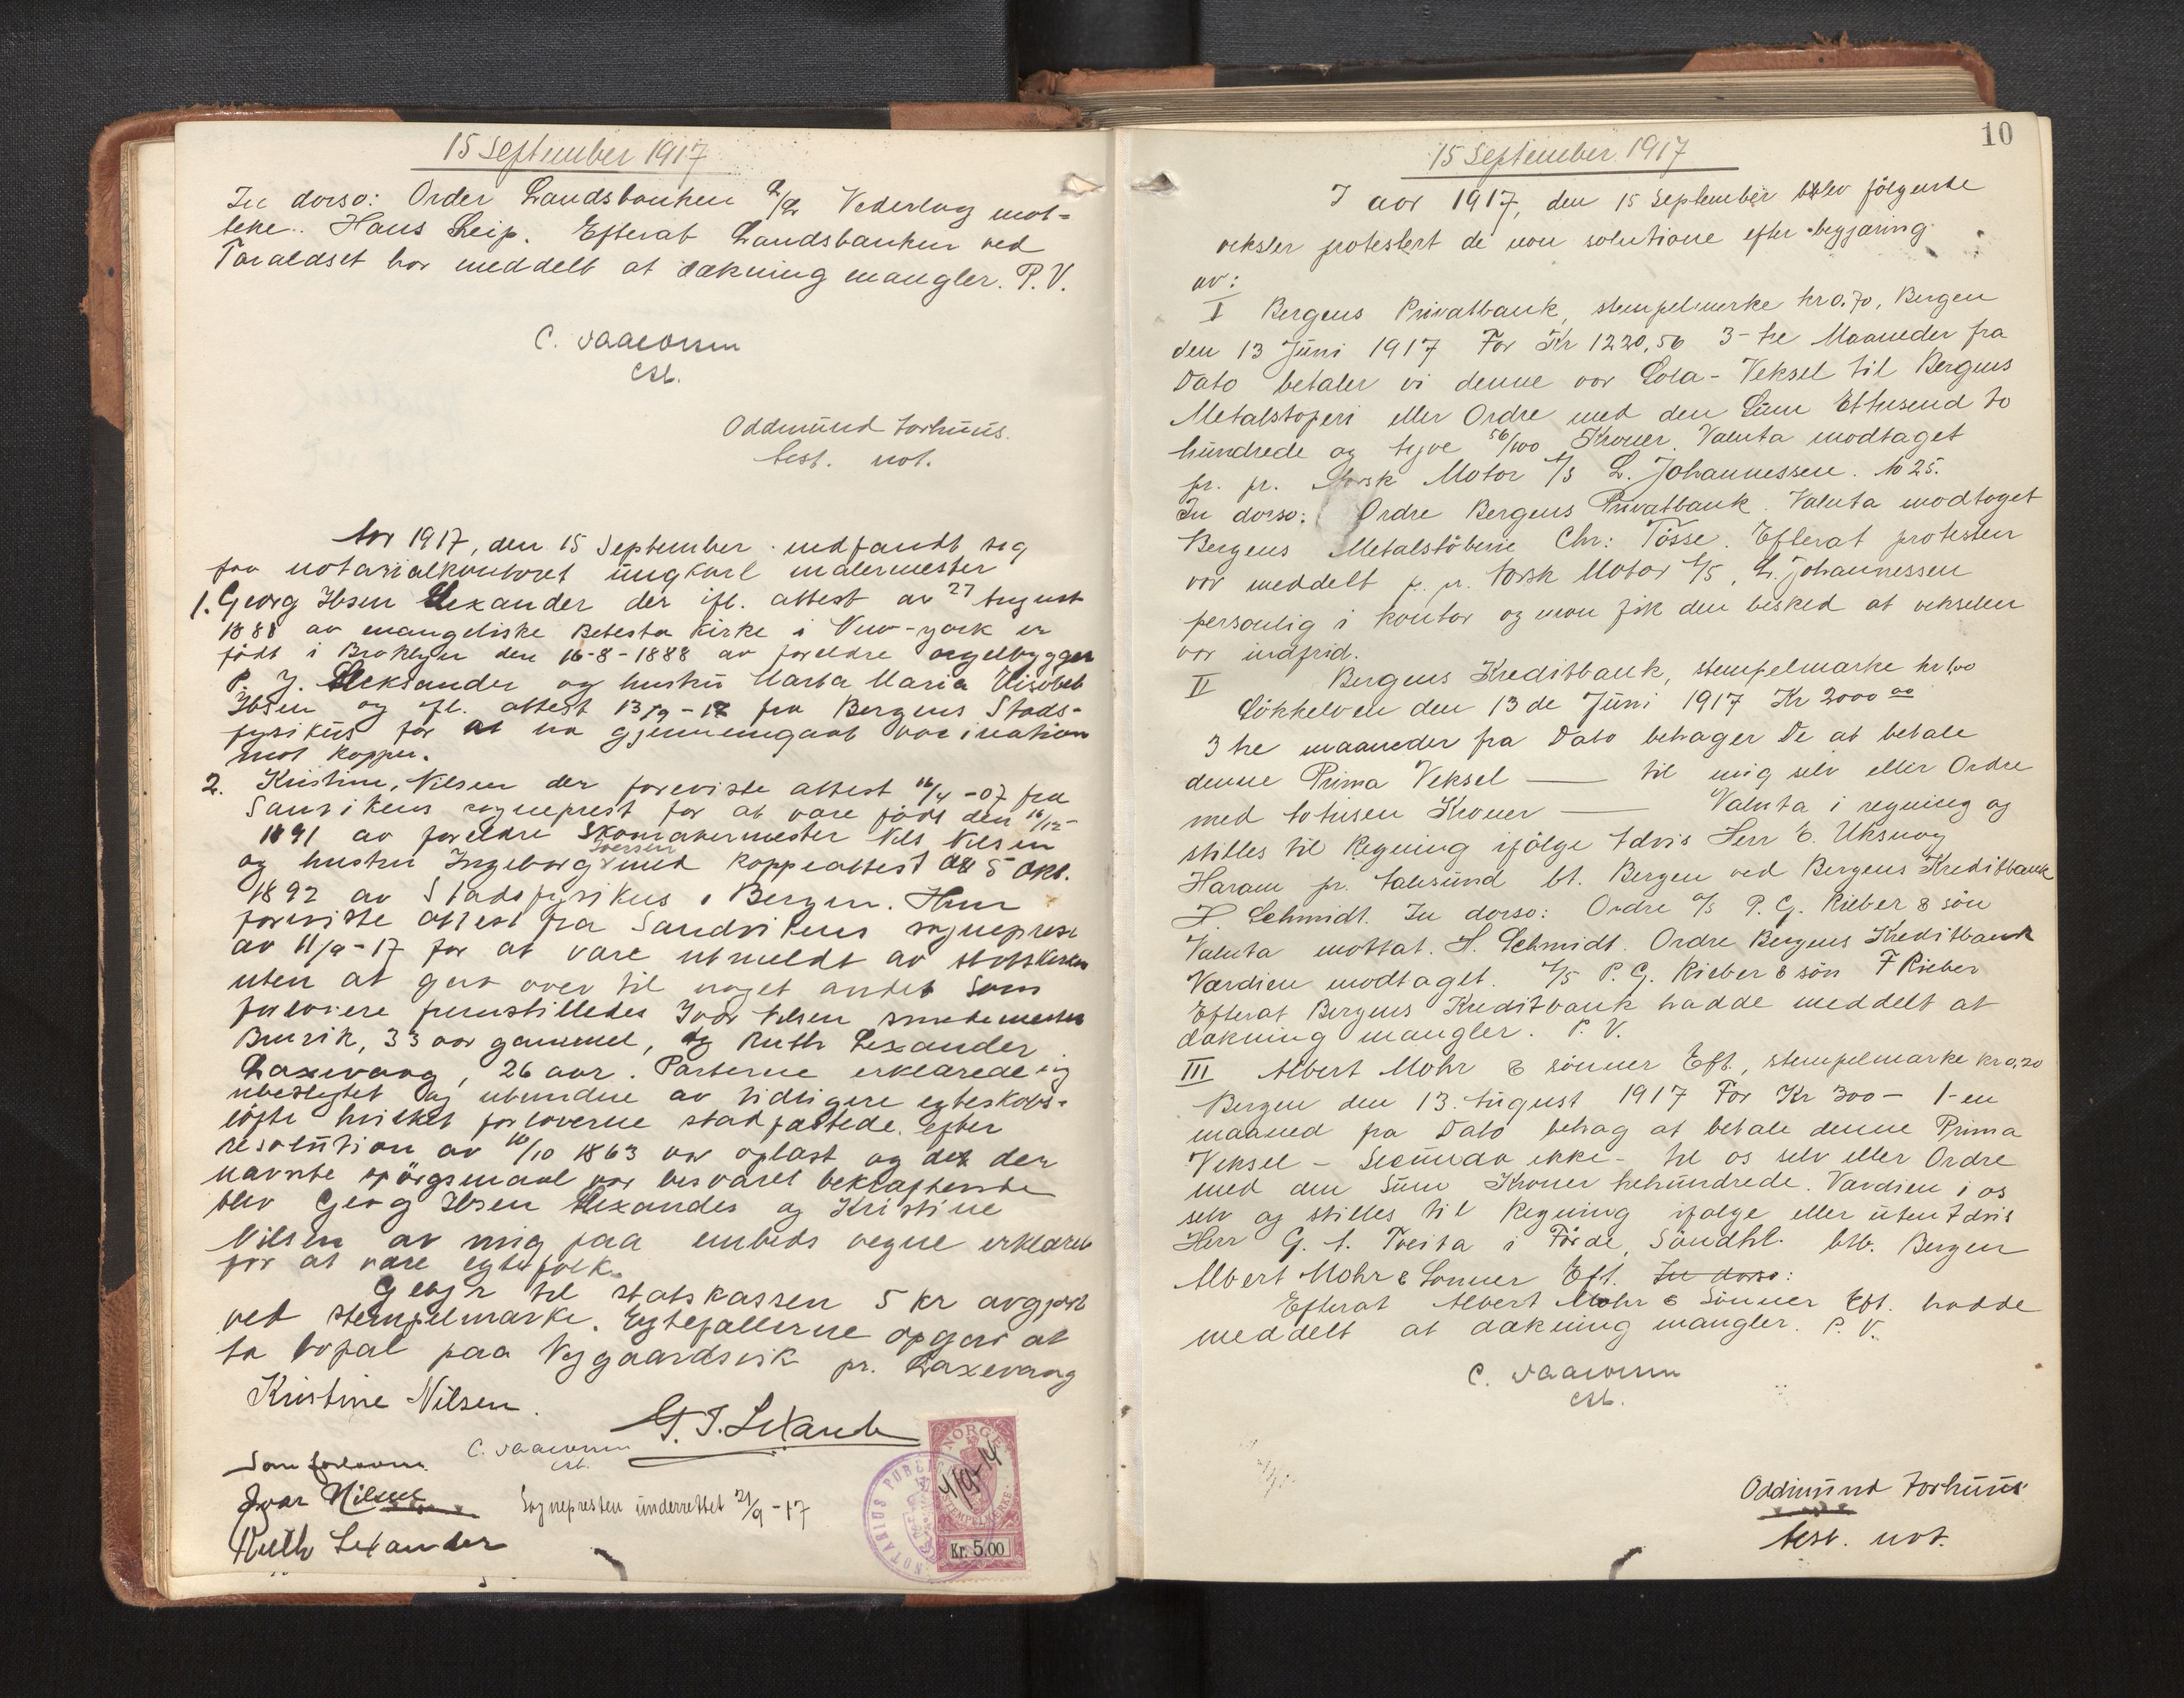 15 September 1917
In dorso: Order Landsbanken A/S Vederlag mot-
teke. Hans Leip. Efterat Landsbanken ved
Taraldset har meddelt at dækning mangler. P.V.
C.
cst.
Oddmund Torhuus.
best. not.
Aar 1917, den 15 September indfandt sig
paa notarialkontoret ungkarl malermester
1. Georg Ibsen Lexander der ifl. attest av 27 August
1888 av evangeliske Betesta Kirke i New-york er
født i Broklyn den 16-8-1888 av foreldre orgelbygger
P. J. Aleksander og hustru Marta Maria Elisebet
Ibsen og ifl. attest 13/9-17 fra Bergens Stads-
fysikus for at ha gjennemgaat vaccination
mot kopper.
2. Kristine Nilsen der foreviste attest 16/4-07 fra
Sanvikens sogneprest for at være født den 16/12-
1891 av foreldre Skomakermester Nils Nilsen
og hustru Ingeborg Iversen med koppeattest av 5 Okt.
1892 av Stadsfysikus i Bergen. Hun
foreviste attest fra Sandvikens sogneprest
av 11/9-17 for at være utmeldt av statskirken
uten at gaa over til noget andet Som
forlovere fremstilledes Ivar Nilsen smedemester
33 aar gammel, og Ruth Lexander
Laxevaag, 26 aar. Parterne erklærede sig
ubeslegtet og ubundne av tidligere egteskabs-
løfte hvilket forloverne stadfæstede. Efter
resolution av 10/10 1863 var oplæst og det der
nævnte spörgsmaal var besvaret bekræftende
blev Georg Ibsen Lexander og Kristine
Nilsen av mig paa embeds vegne erklæret
for at være egtefolk.
Gebyr til statskassen 5 kr avgjort
ved stempelmærke. Egtefællerne opgav at
ta bopæl paa Nygaardsvik pr. Laxevaag
Kristine Nilsen.
G. I. Lexander
C.
cst.
Som forlovere
Ivar Nilsen
Sognepresten underrettet 21/9-17
Ruth Lexander
NOTARIUS PUBLICUS
NORGE
STEMPELMERKE
Kr. 5.00
10
15 September 1917
I aar 1917, den 15 September blev følgende
veksler protestert de non solutione efter begjæring
av:
I Bergens Privatbank, stempelmerke kr 0.70, Bergen
den 13 Juni 1917 For Kr 1220,56 3-tre Maaneder fra
Dato betaler vi denne vor Sola-Veksel til Bergens
Metalstøperi eller Ordre med den Sum Ettusend to
hundrede og tyve 56/100 Kroner. Valuta modtaget
pr. pr. Norsk Motor A/S L. Johannessen. No 25.
In dorso: Ordre Bergens Privatbank. Valuta modtaget
Bergens Metalstøberie Chr: Tösse. Efterat protesten
var meddelt p. p. Norsk Motor A/S, L. Johannessen
personlig i kontor og man fik den besked at vekselen
var indfrid.
II Bergens Kreditbank, stempelmærke kr 1,00
Løkkelven den 13de Juni 1917 Kr 2000 00
3 tre maaneder fra Dato behager De at betale
denne Prima Veksel — til mig selv eller Ordre
med totusen Kroner — Valuta i regning og
stilles til Regning ifølge Advis Herr E. Uksnøy
Haram pr. Aalesund bt. Bergen ved Bergens Kreditbank
H. Schmidt. In dorso: Ordre A/S P. G. Rieber & søn
Valuta mottat. H. Schmidt. Ordre Bergens Kreditbank
Værdien modtaget. A/S P. G. Rieber & søn F Rieber
Efterat Bergens Kreditbank hadde meddelt at
dækning mangler. P. V.
III Albert Mohr & sønner Eft., stempelmærke kr 0,20
Bergen den 13. August 1917 For Kr 300 - 1-en
maaned fra Dato behag at betale denne Prima
Veksel - Secunda ikke - til os selv eller Ordre
med den Sum Kroner trehundrede. Værdien i os
selv og stilles til Regning ifølge eller uten Advis
Herr G. A. Tveita i Förde, Söndhl. btb. Bergen
Albert Mohr & Sonner Eft. In dorso:
Efterat Albert Mohr & Sönner Eft. hadde
meddelt at dækning mangler. P. V.
C.
cst.
Oddmund Torhuus
best. not.